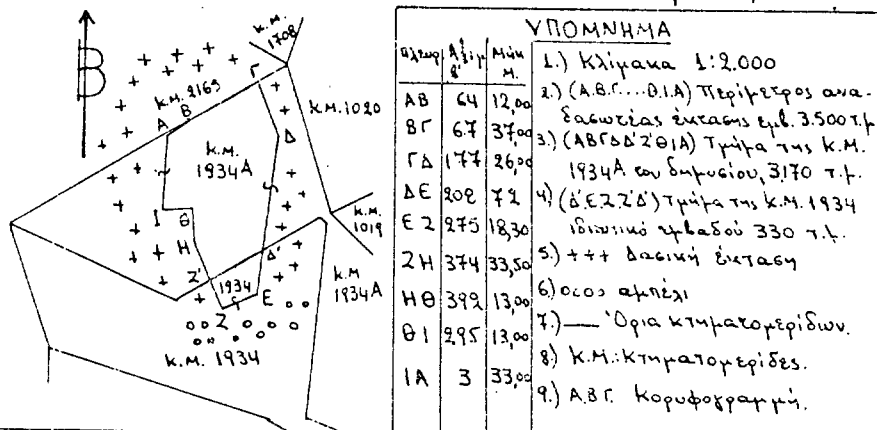 Β
Κ.Μ.
1708
Κ.Μ. 2169
Α Β
Γ
Κ.Μ. 1020
Δ
Κ.Μ.
1934Α
Ι Θ
Η
Κ.Μ.
1019
Ζ' Δ'
1934
Ε
Ζ
Κ.Μ
1934Α
Κ.Μ. 1934
ΥΠΟΜΝΗΜΑ
Πλευρ Αζιμ g Μήκ Μ.
ΑΒ 64 12,00
ΒΓ 67 37,00
ΓΔ 177 26,00
ΔΕ 202 72
ΕΖ 275 18,30
ΖΗ 374 33,50
ΗΘ 392 13,00
ΘΙ 295 13,00
ΙΑ 3 33,00
1.) Κλίμακα 1:2.000
2.) (Α.Β.Γ....Θ.Ι.Α) Περίμετρος ανα-
δασωτέας έκτασης εμβ. 3.500 τ.μ
3.) (ΑΒΓΔΔ'Ζ'ΘΙΑ) Τμήμα της Κ.Μ.
1934Α του δημοσίου, 3170 τ.μ.
4) (Δ'.Ε.Ζ.Ζ'Δ') Τμήμα της Κ.Μ. 1934
ιδιωτικό εμβαδού 330 τ.μ.
5.) +++ Δασική έκταση
6.) οοοο αμπέλι
7.) — Όρια κτηματομερίδων.
8.) Κ.Μ.: Κτηματομερίδες.
9.) Α.Β.Γ. Κορυφογραμμή.